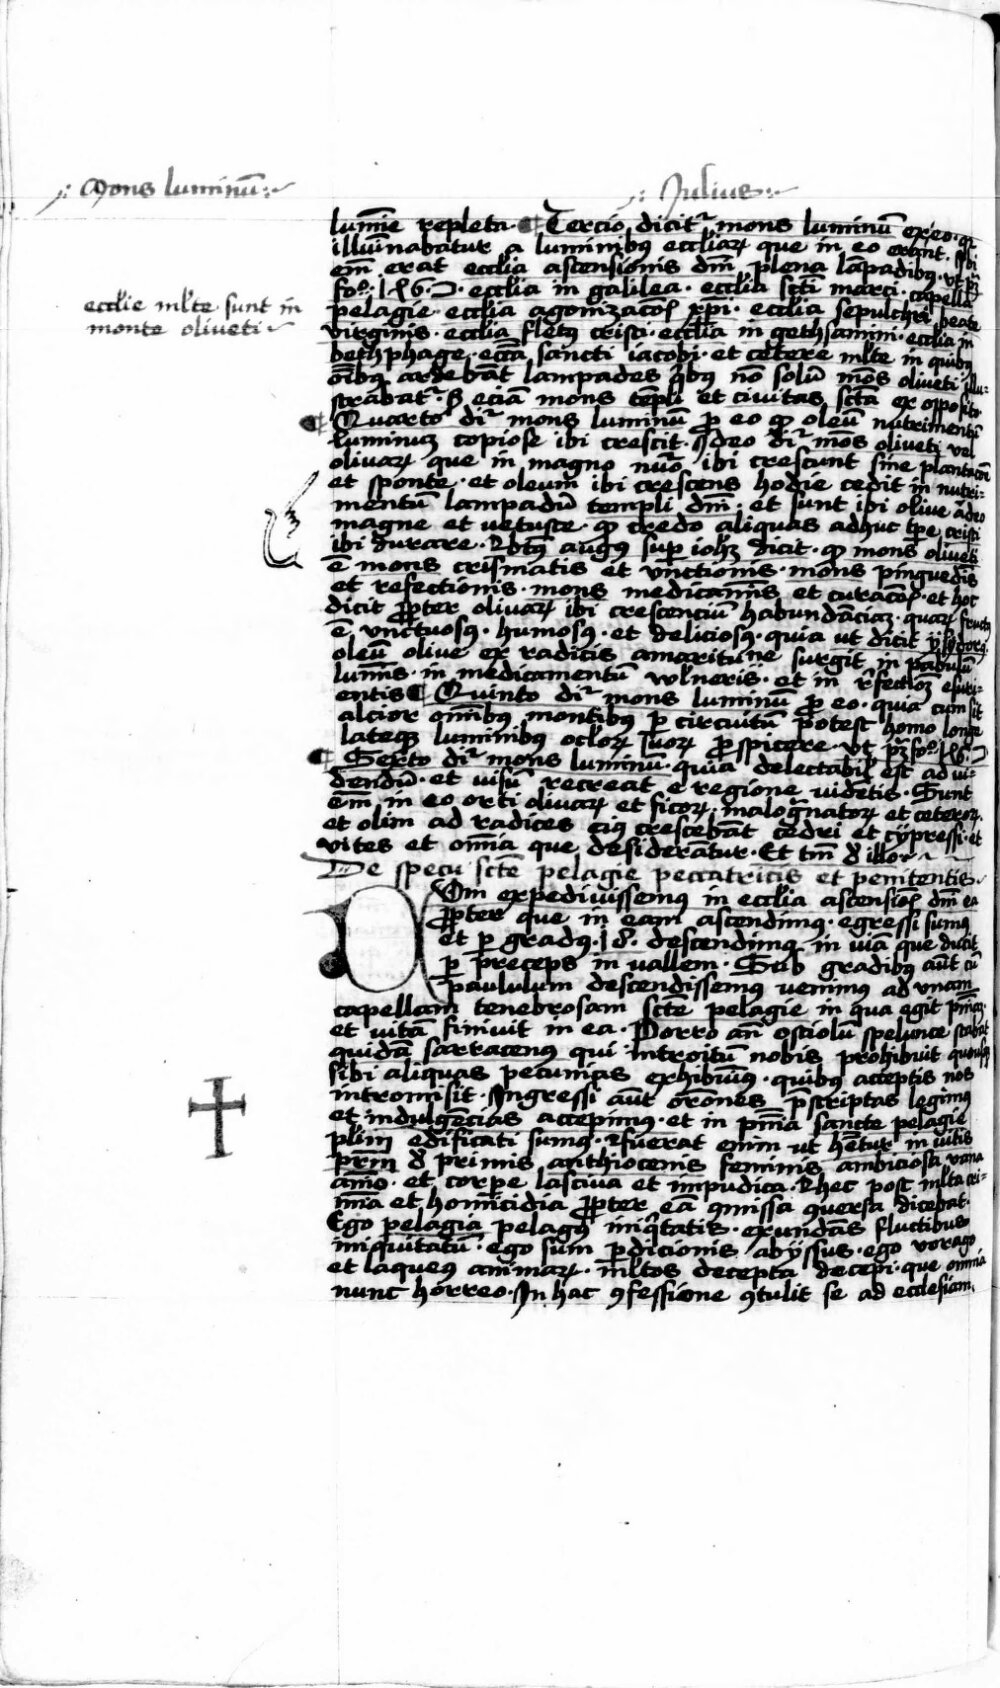 Mons luminū
Julius
lumīe repleta. ¶ Tercio dicitʳ mons luminū ex eo. qꝛ
illuīnabatur a luminibꝰ eccliarꝫ que in eo erant. Ibi
em̄ erat ecclia ascensionis dnī plena lāpadibꝰ. vt pꝫ
fo. ecclia in galilea. ecclia sctī marci. capella
pelagie. ecclia agonizacōꝭ xpī. ecclia sepulchri beate
virginis. ecclia fletꝰ cristi. ecclia in gethsamini. ecclia in
bethphage. eccīa sancti iacobi. et cetere ml̄te in quibꝰ
oībꝰ ardebāt lampades qͥbꝰ nō solū mōs oliveti illu-
strabatʳ. sꝫ eciā mons tēpli et civitas sctā ex opposito
¶ Quarto dīʳ mons luminū ꝓ eo qꝙ oleū nutrimentū
luminū copiose ibi crescit. Ideo dīʳ mōs oliveti vel
olivarꝫ que in magno nūo ibi crescunt sine plantacōe
et sponte. et oleum ibi crescens hodie cedit in nutri-
mentū lampadū templi dnī. et sunt ibi olive adeo
magne et vetuste. qꝙ credo aliquas adhuc tꝑe cristi
ibi durare. Vbꝰ augꝰ suꝑ ioh̄ꝫ dicit. qꝙ mons oliveti
ē mons crismatis et vnctionis. mons pinguedīs
et refectionis. mons medicamīs et curacōꝭ. et hoc
dicit ꝓpter olivarꝫ ibi crescenciū habundāciaꝫ. quarꝫ fructꝰ
ē vnctuosꝰ. humosꝰ. et deliciosꝰ. quia ut dicit ysidorꝰ.
oleū olive ex radicis amaritu͞ne surgit in pabulū
lumīs. in medicamentū vulneris. et in r̄fectōꝫ esuri-
entis ¶ Quinto dīʳ mons luminū ꝓ eo. quia cum sit
alcior omībꝰ montibꝰ ꝑ circuitū potest homo longe
lateqꝫ luminibꝰ oclorꝫ suorꝫ ꝓspicere. vt pꝫ fo.
¶ Sexto dīʳ mons luminū. quia delectabil̄ est ad vi-
dendū. et visū recreat e regione videtis. Sunt
em̄ in eo orti olivarꝫ et ficorꝫ. malogͣnatorꝫ et ceterorꝫ.
et olim ad radices eiꝰ crescebāt cedri et cypressi. et
vites et omīa que desiderātur. Et tm̄ ð illo.
De specu sctē pelagie peccatricis et penitentis.
Cum expedivissemꝰ in ecclia ascensiōꝭ dnī ea
ꝓpter que in eam ascendimꝰ. egressi sumꝰ
et ꝑ gradꝰ. 18. descendimꝰ in viā que ducit
ꝑ preceps in vallem. Sub gradibꝰ aūt cū
paululum descendissemꝰ venimꝰ ad vnam
capellam tenebrosam sctē pelagie in qua egit pnīaꝫ.
et vitā finivit in ea. Porro an̄ ostiolū spelunce stabat
quidā sarracenꝰ qui introitū nobis prohibuit quousqꝫ
sibi aliquas pecunias exhibuimꝰ. quibꝰ acceptis nos
intromisit. Ingressi aūt or̄ones p̄scriptas legimꝰ
et indulgēcias accepimꝰ. et in pnīa sancte pelagie
plīm edificati sumꝰ. fuerat enim ut hētur in vitis
prm̄ ð primis anthiocenis feminis ambiciosa vana
aīo. et corꝑe lasciva et impudica. hec post ml̄ta cri-
mīa et homicidia ꝓpter eā ꝯmissa ꝯversa dicebat.
Ego pelagia pelagꝰ iniqͥtatis. exundās fluctibus
iniquitatū. ego sum ꝑdicionis abyssus. ego vorago
et laqueꝰ animarꝫ. ml̄tos decepta decepi. que omnia
nunc horreo. In hac ꝯfessione ꝯtulit se ad ecclesiam.
ecclie ml̄te sunt in
monte oliveti